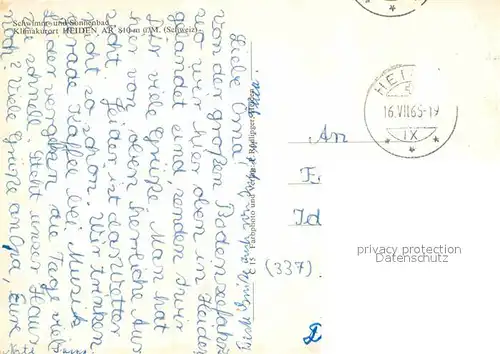 Schwimm- und Sonnenbad
Klimakurort HEIDEN AR 810 m ü. M. (Schweiz)
Liebe Oma!
Von der großen Bodenseefahrt
wo wir hier oben in Heiden
gelandet sind, senden wir
Dir viele Grüße. Man hat
hier von oben herrliche Aus-
sicht. Leider ist das Wetter
nicht so schön. Wir trinken
gerade Kaffee bei Musik.
Leider vergehen die Tage viel
zu schnell. Steht unser Haus
noch? Viele Grüße an Opa, Eure
C 15 Farbphoto und Verlag
HEI
16.VII.65-19
IX
An
F
Id
(337)
D
privacy protection
by